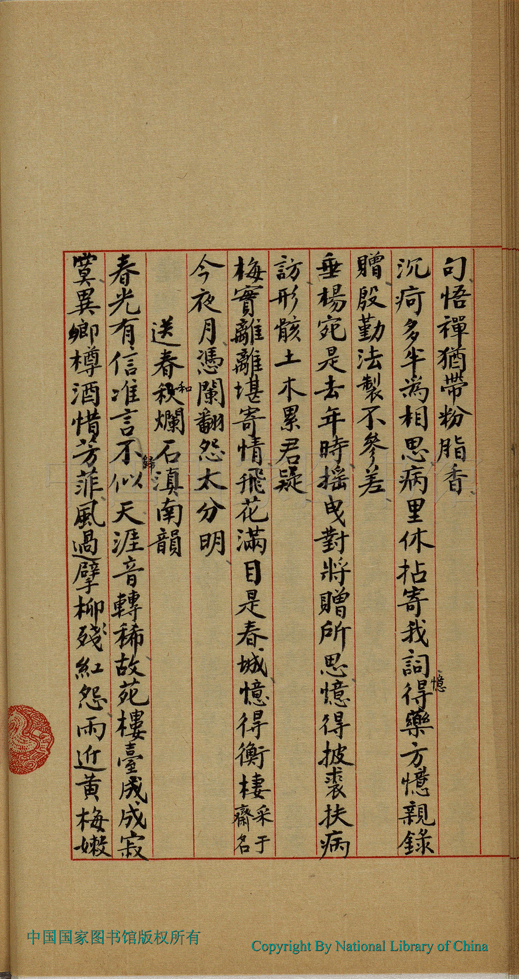 句悟禪猶帶粉脂香
沉疴多半為相思病里休拈寄我詞得藥方憶親錄
憶
贈殷勤法製不參差
垂楊宛是去年時搖曳對將贈所思憶得披裘扶病
訪形骸土木累君疑
梅實離離堪寄情飛花滿目是春城憶得衡棲采于齋名
今夜月憑闌翻怨太分明
送春秋爛石滇南韻
和
春光有信准言不似天涯音轉稀故苑樓臺成成寂
歸
寞異鄉樽酒惜芳菲風過擘柳殘紅怨雨近黃梅嫩
中国国家图书馆版权所有
Copyright By National Library of China